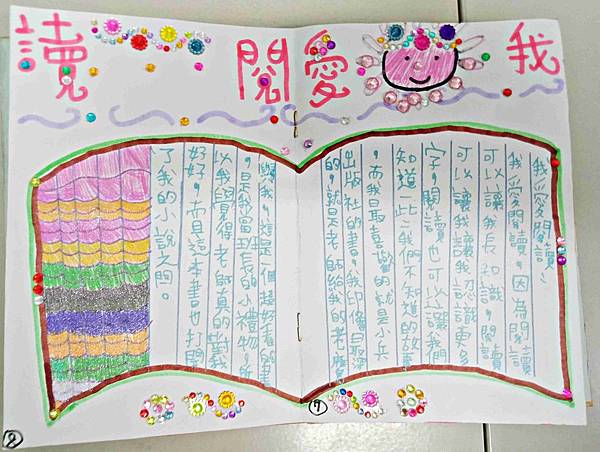 我愛閱讀
我愛閱讀、
我愛閱讀,因為閱讀
可以讓我長知識,閱讀
可以讓我讓我認識更多
字,閱讀也可以讓我們
知道一些我們不知道的故事
,而我最喜歡的就是小兵
出版社的書,我印像最深
的,就是老師給我的老鷹
我,這是一個超好看的書
,是我當班長的小禮物,所
以我覺得老師真的對我
好好,而且這本書也打開
了我的小說之門。
7
8